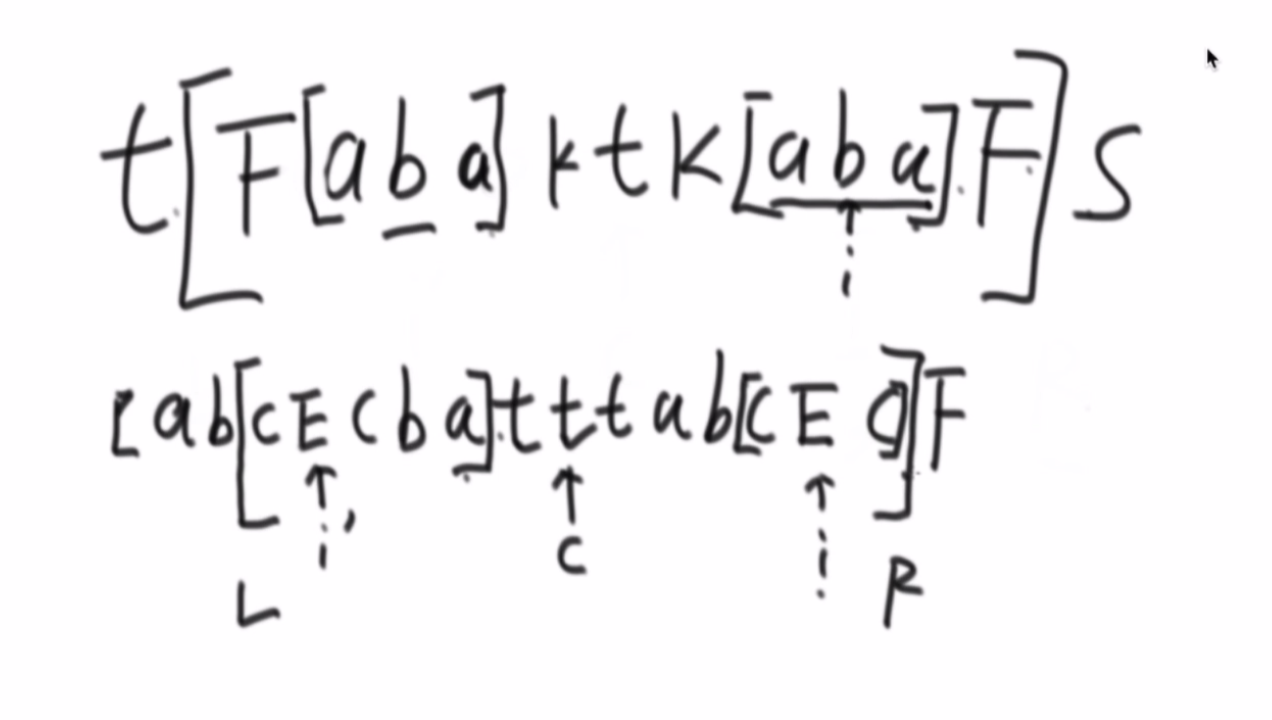 t[F[aba]ktk[aba]F]S
[ab[cEcba]tttab[cEc]]F
i i' c i
L R